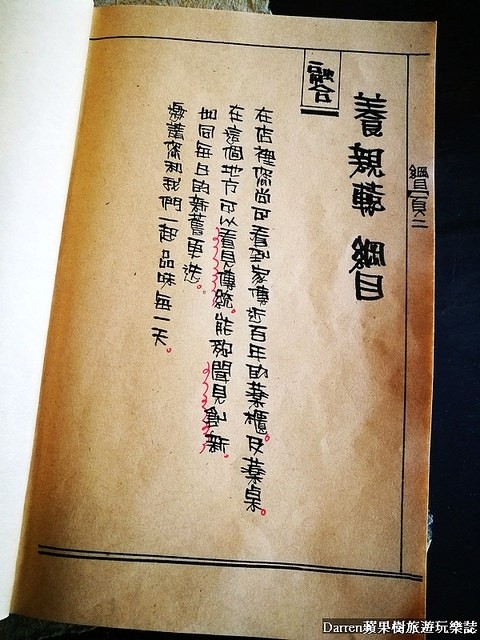 綱目頁二
養親轅 綱目
融合
在店裡您尚可看到家傳近百年的藥櫃。及藥桌。
在這個地方可以看見傳統。能夠聞見創新。
如同每日的新舊更迭。
邀請您和我們一起品味每一天。
Darren蘋果樹旅遊玩樂誌